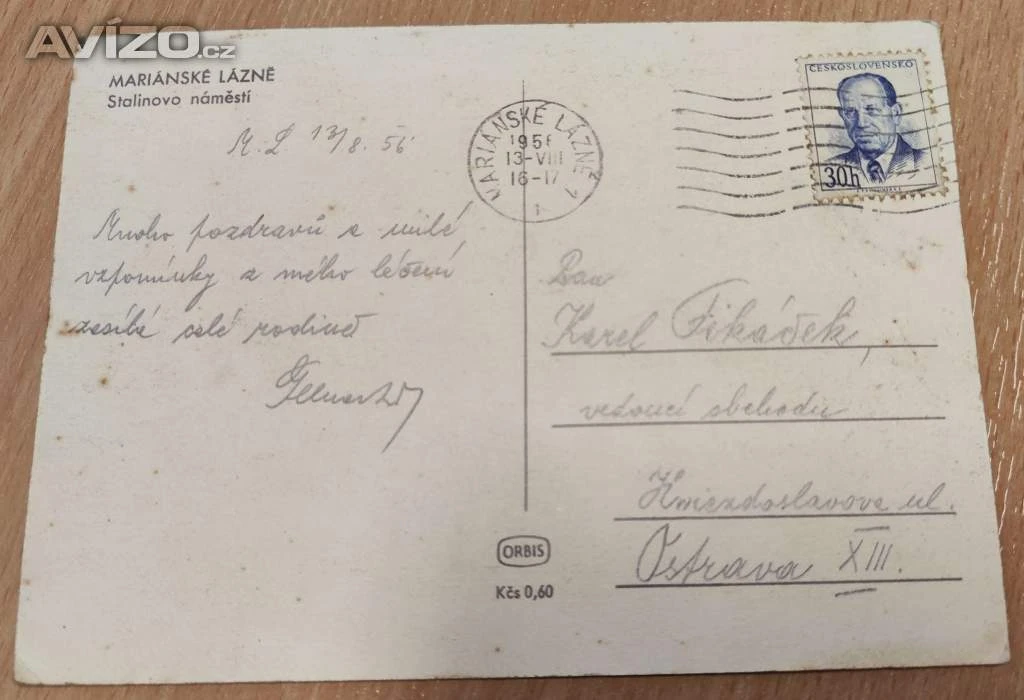 AVÍZO.cz
MARIÁNSKÉ LÁZNĚ
Stalinovo náměstí
M. L 13/8. 56
Mnoho pozdravů a milé
vzpomínky z mého léčení
zasílá celé rodině
MARIÁNSKÉ LÁZNĚ 1
1956
13-VIII
16-17
1
ČESKOSLOVENSKO
30h
Pan
Karel Fikáček,
vedoucí obchodu
Hviezdoslavova ul.
Ostrava XIII.
ORBIS
Kčs 0,60